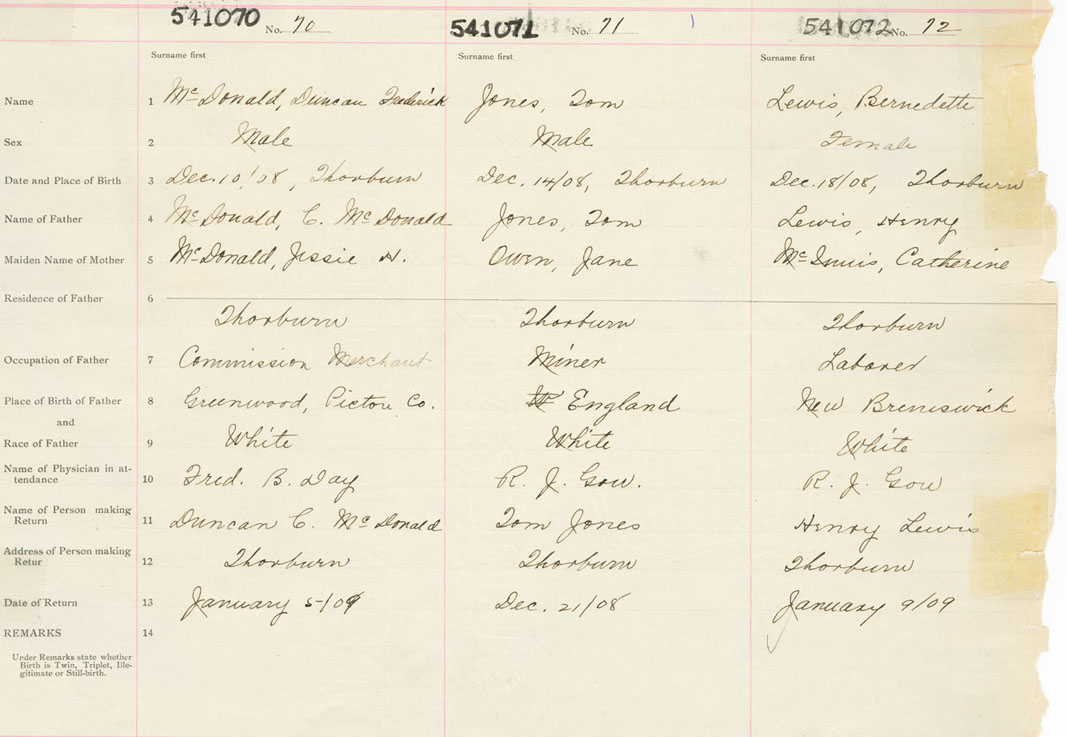 541070 No. 70 541071 No. 71 541072 No. 72
Surname first Surname first Surname first
Name 1 McDonald, Duncan Frederick Jones, Tom Lewis, Bernedette
Sex 2 Male Male Female
Date and Place of Birth 3 Dec. 10/08, Thorburn Dec. 14/08, Thorburn Dec. 18/08, Thorburn
Name of Father 4 McDonald, C. McDonald Jones, Tom Lewis, Henry
Maiden Name of Mother 5 McDonald, Jessie H. Owen, Jane McInnis, Catherine
Residence of Father 6
Thorburn Thorburn Thorburn
Occupation of Father 7 Commission Merchant Miner Laborer
Place of Birth of Father 8 Greenwood, Pictou Co. England New Breniswick
and
Race of Father 9 White White White
Name of Physician in at-
tendance 10 Fred. B. Day R. J. Gow. R. J. Gow
Name of Person making
Return 11 Duncan C. McDonald Tom Jones Henry Lewis
Address of Person making
Retur 12 Thorburn Thorburn Thorburn
Date of Return 13 January 5/09 Dec. 21/08 January 9/09
REMARKS 14
Under Remarks state whether
Birth is Twin, Triplet, Ille-
gitimate or Still-birth.